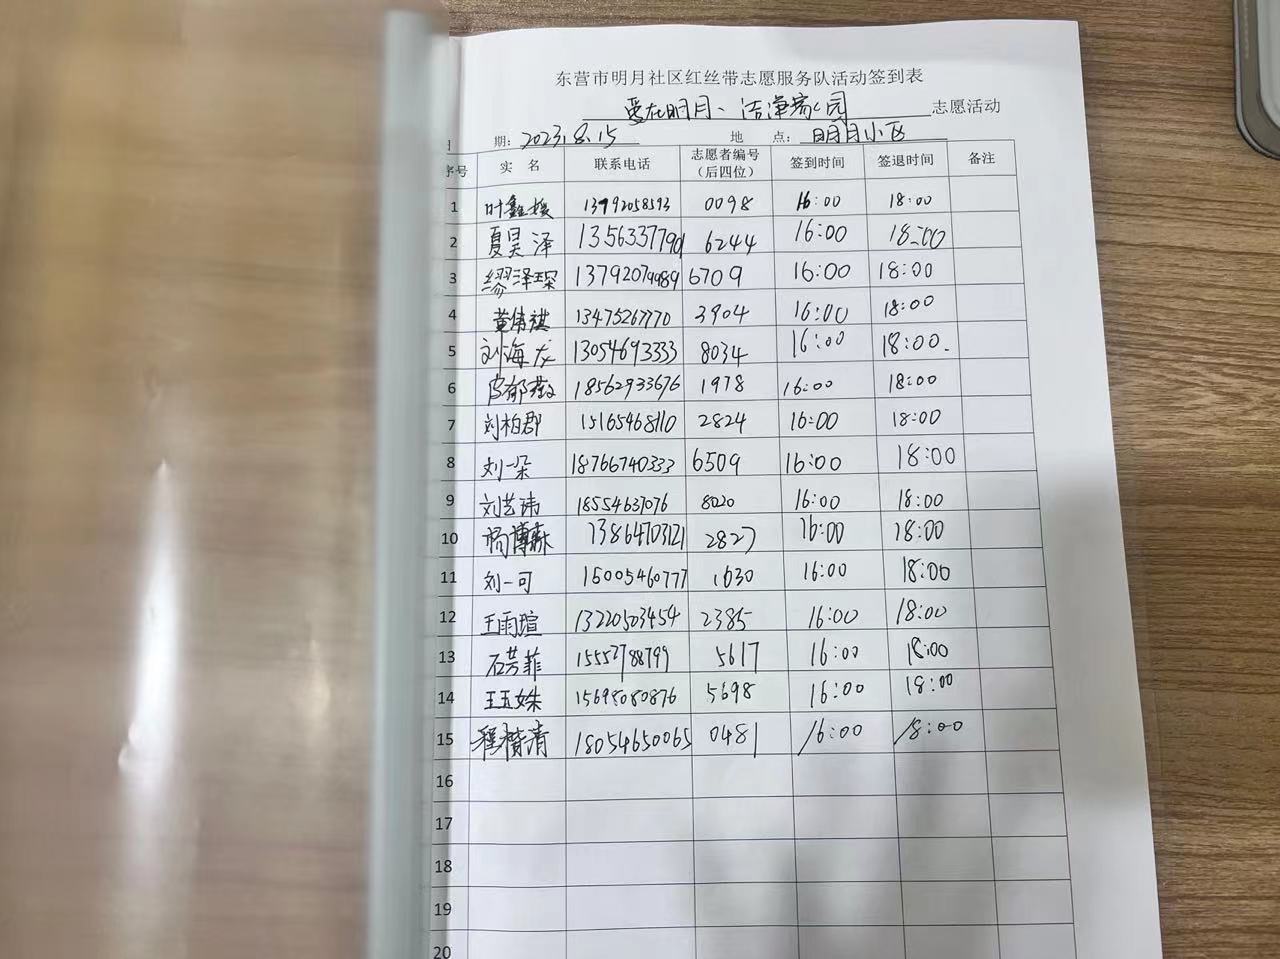 东营市明月社区红丝带志愿服务队活动签到表
爱在明月、洁净家园 志愿活动
期：2023.8.15 地 点：明月小区
序号 实 名 联系电话 志愿者编号（后四位） 签到时间 签退时间 备注
1 叶鑫媛 13792058593 0098 16:00 18:00
2 夏昊泽 13563377901 6244 16:00 18:00
3 缪泽琛 13792079989 6709 16:00 18:00
4 黄倩祺 13475267770 3904 16:00 18:00
5 刘海龙 13054693333 8034 16:00 18:00.
6 18562933676 1978 16:00 18:00
7 刘柏郡 15165468110 2824 16:00 18:00
8 刘一朵 18766740333 6509 16:00 18:00
9 刘艺玮 18554637076 8020 16:00 18:00
10 杨博森 13864703121 2827 16:00 18:00
11 刘一可 15005460777 1630 16:00 18:00
12 王雨瑄 13220503454 2385 16:00 18:00
13 石芳菲 15552788799 5617 16:00 18:00
14 王玉姝 15698080876 5698 16:00 18:00
15 程楷清 18054650065 0481 16:00 18:00
16
17
18
19
20